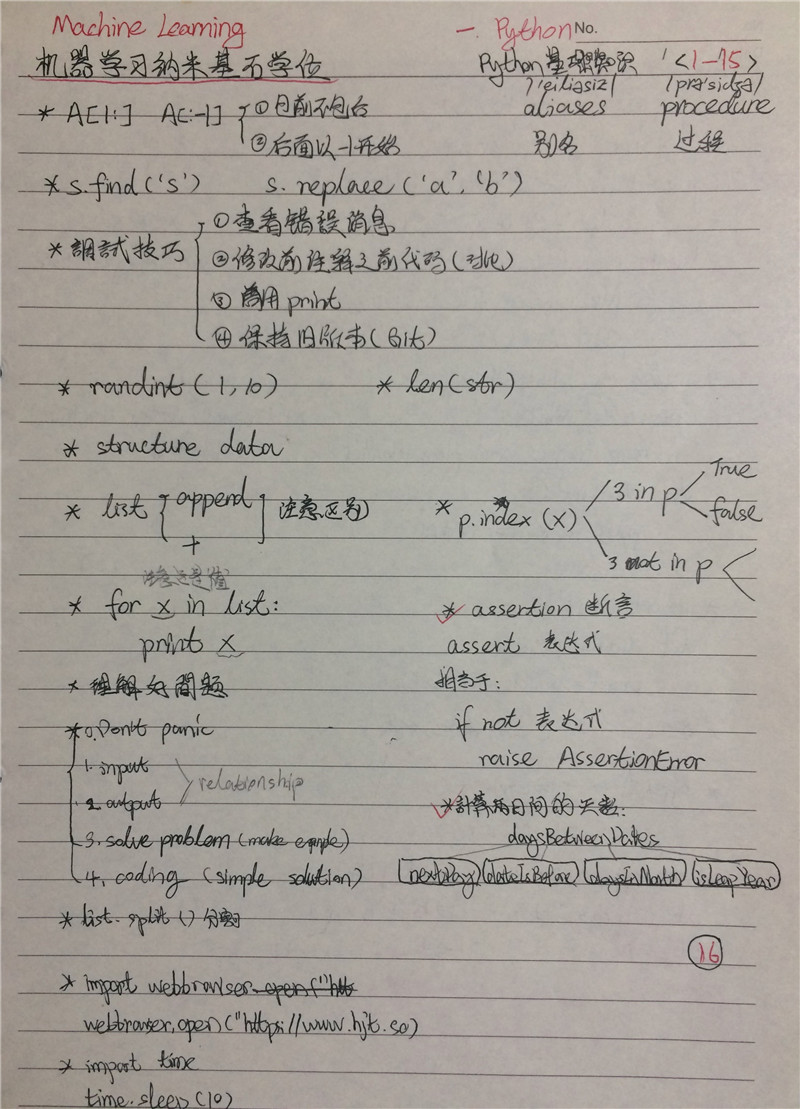 Machine Learning 一. Python No.
机器学习纳米基石学位 Python基础知识 <1-15>
/'eiliəsiz/ /prə'sidʒə/
* A[1:] A[:-1] ①包前不包后 aliases procedure
②后面以-1开始 别名 过程
* s.find('s') s.replace('a','b')
* 調試技巧 ①查看错误消息
②修改前注释之前代码(对比)
③善用print
④保持旧版本(Git)
* randint(1,10) * len(str)
* structure data
* list append 注意区别 * p.index(x) 3 in p True
+ false
3 not in p
注意这是值
* for x in list: * assertion 断言
print x assert 表达式
* 理解好問題 相当于:
* 0. Don't panic if not 表达式
1. input raise AssertionError
relationship
2. output * 計算两日间的天数:
3. solve problem (make example) daysBetweenDates
4. coding (simple solution) nextDay dateIsBefore daysInMonth isLeapYear
* list.split() 分割
16
* import webbrowser.open("htt
webbrowser.open("https://www.hjt.so)
* import time
time.sleep(10)